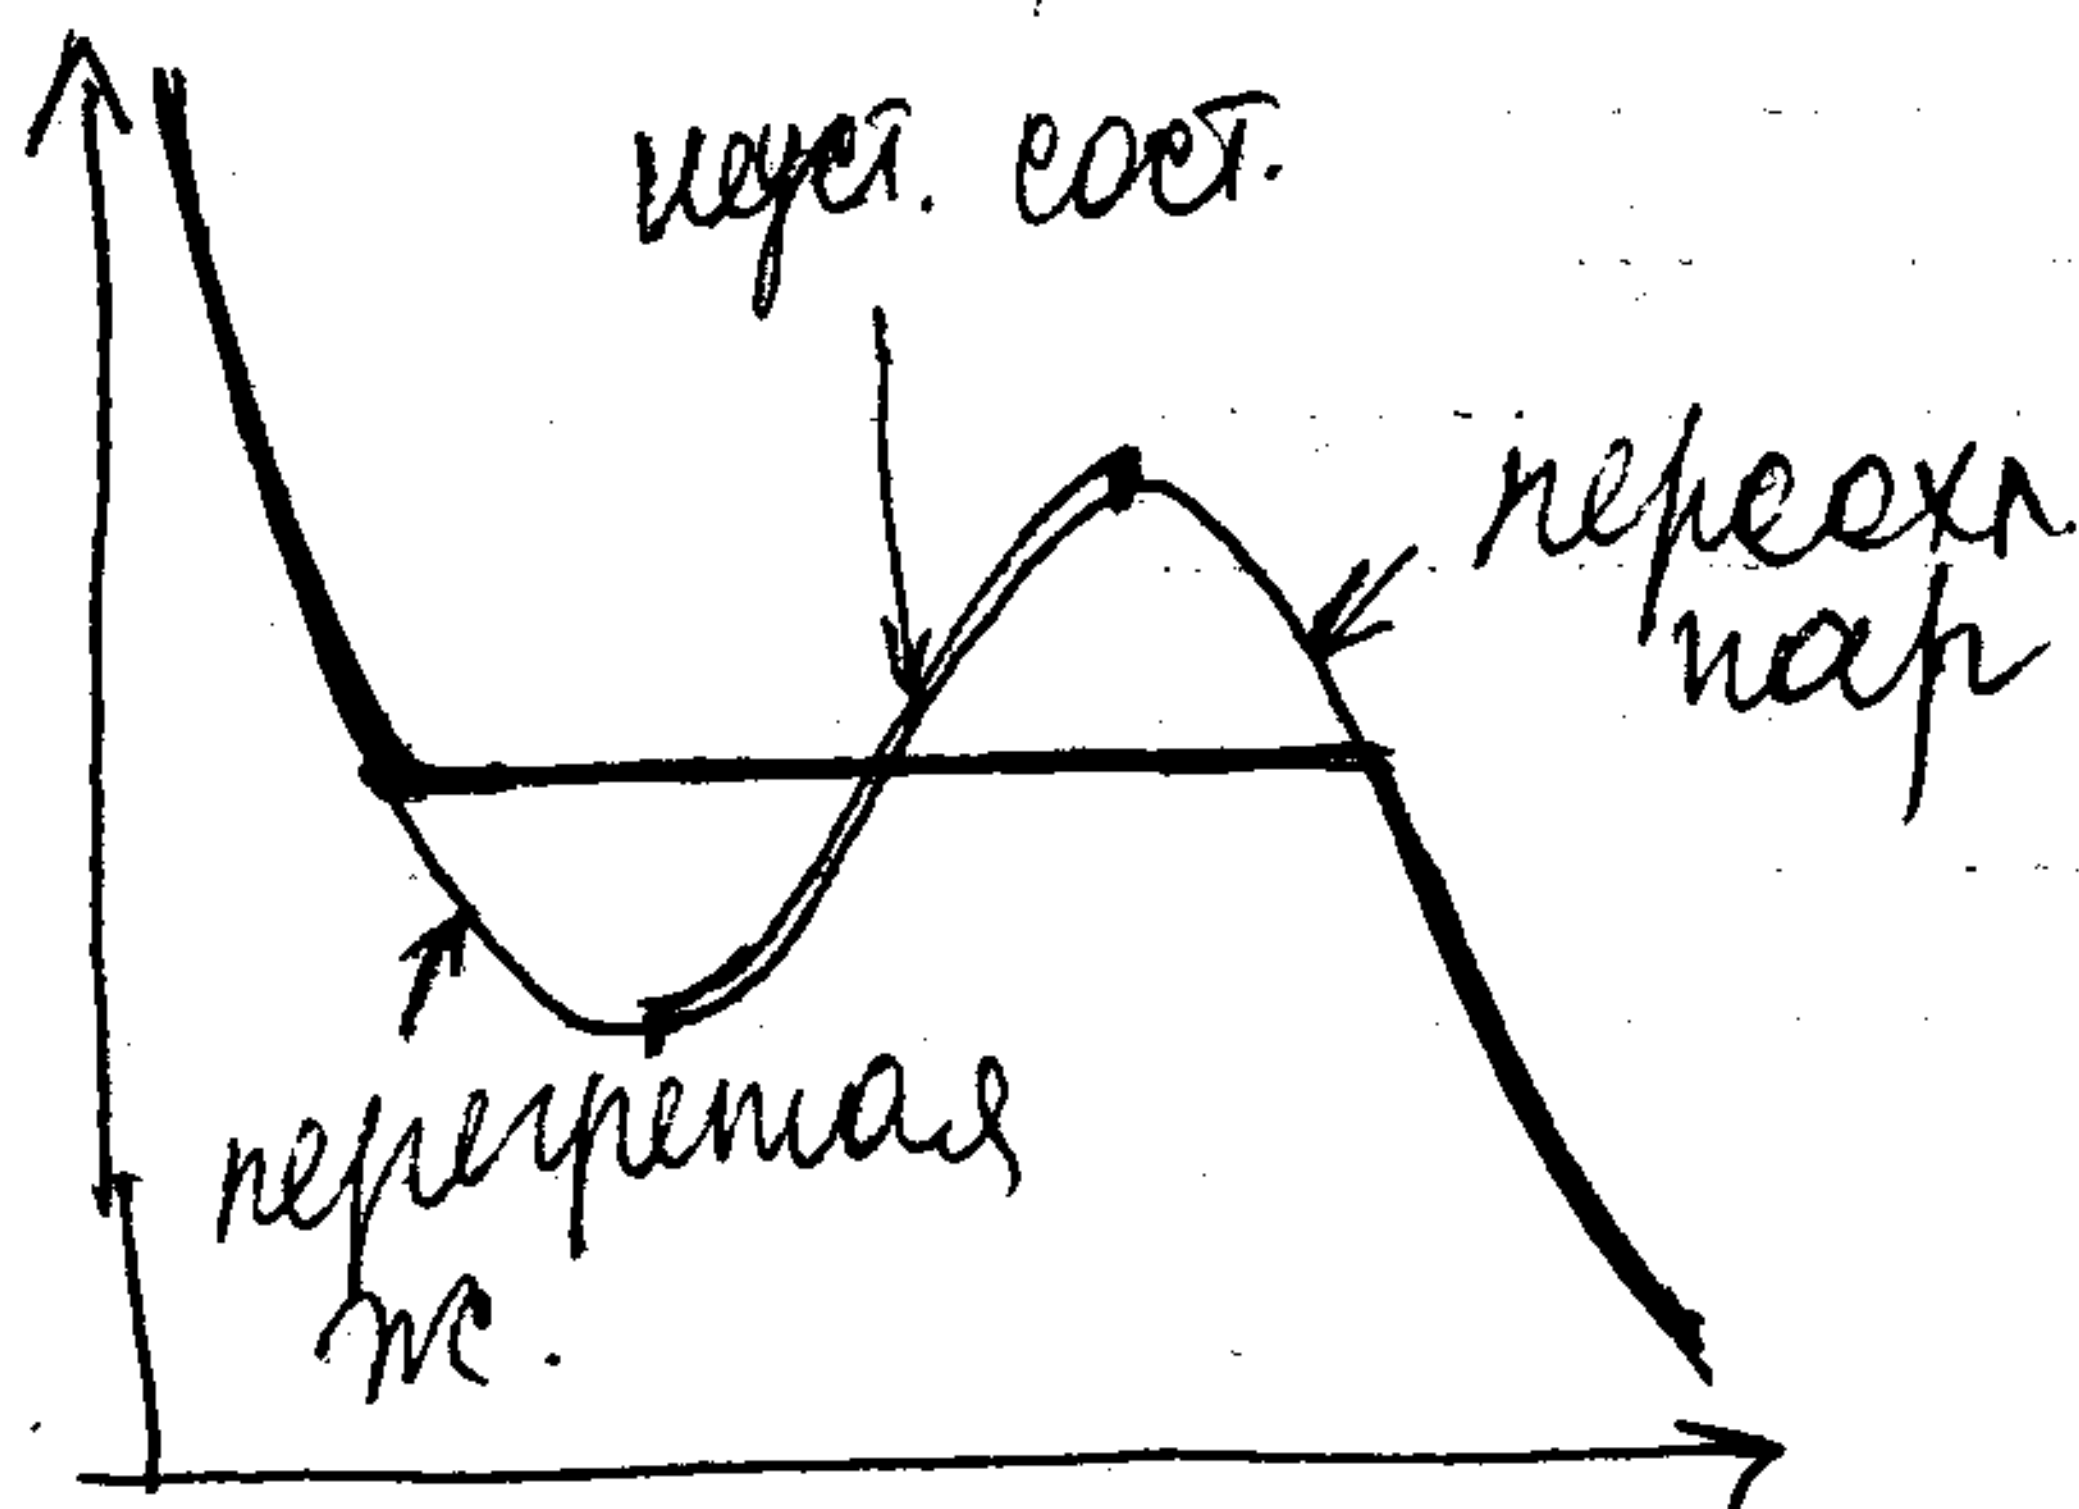 неуст. сост.
переохл.
пар
перегретая
ж.